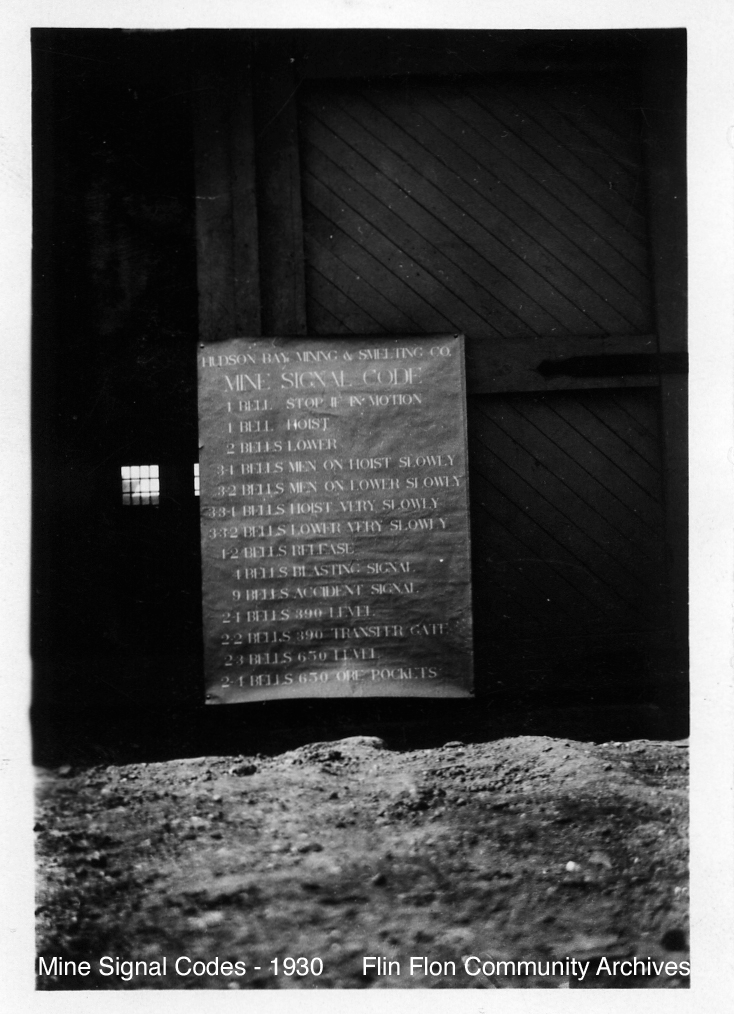 HUDSON BAY MINING & SMELTING CO.
MINE SIGNAL CODE
1 BELL STOP IF IN MOTION
1 BELL HOIST
2 BELLS LOWER
3-1 BELLS MEN ON HOIST SLOWLY
3-2 BELLS MEN ON LOWER SLOWLY
3-3-1 BELLS HOIST VERY SLOWLY
3-3-2 BELLS LOWER VERY SLOWLY
1-2 BELLS RELEASE
4 BELLS BLASTING SIGNAL
9 BELLS ACCIDENT SIGNAL
2-1 BELLS 390 LEVEL
2-2 BELLS 390 TRANSFER GATE
2-3 BELLS 650 LEVEL
2-4 BELLS 650 ORE POCKETS
Mine Signal Codes - 1930 Flin Flon Community Archives